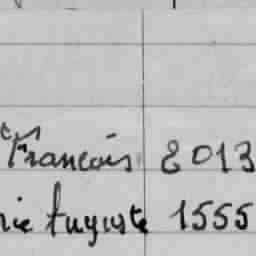 François 2013
rie Auguste 1555